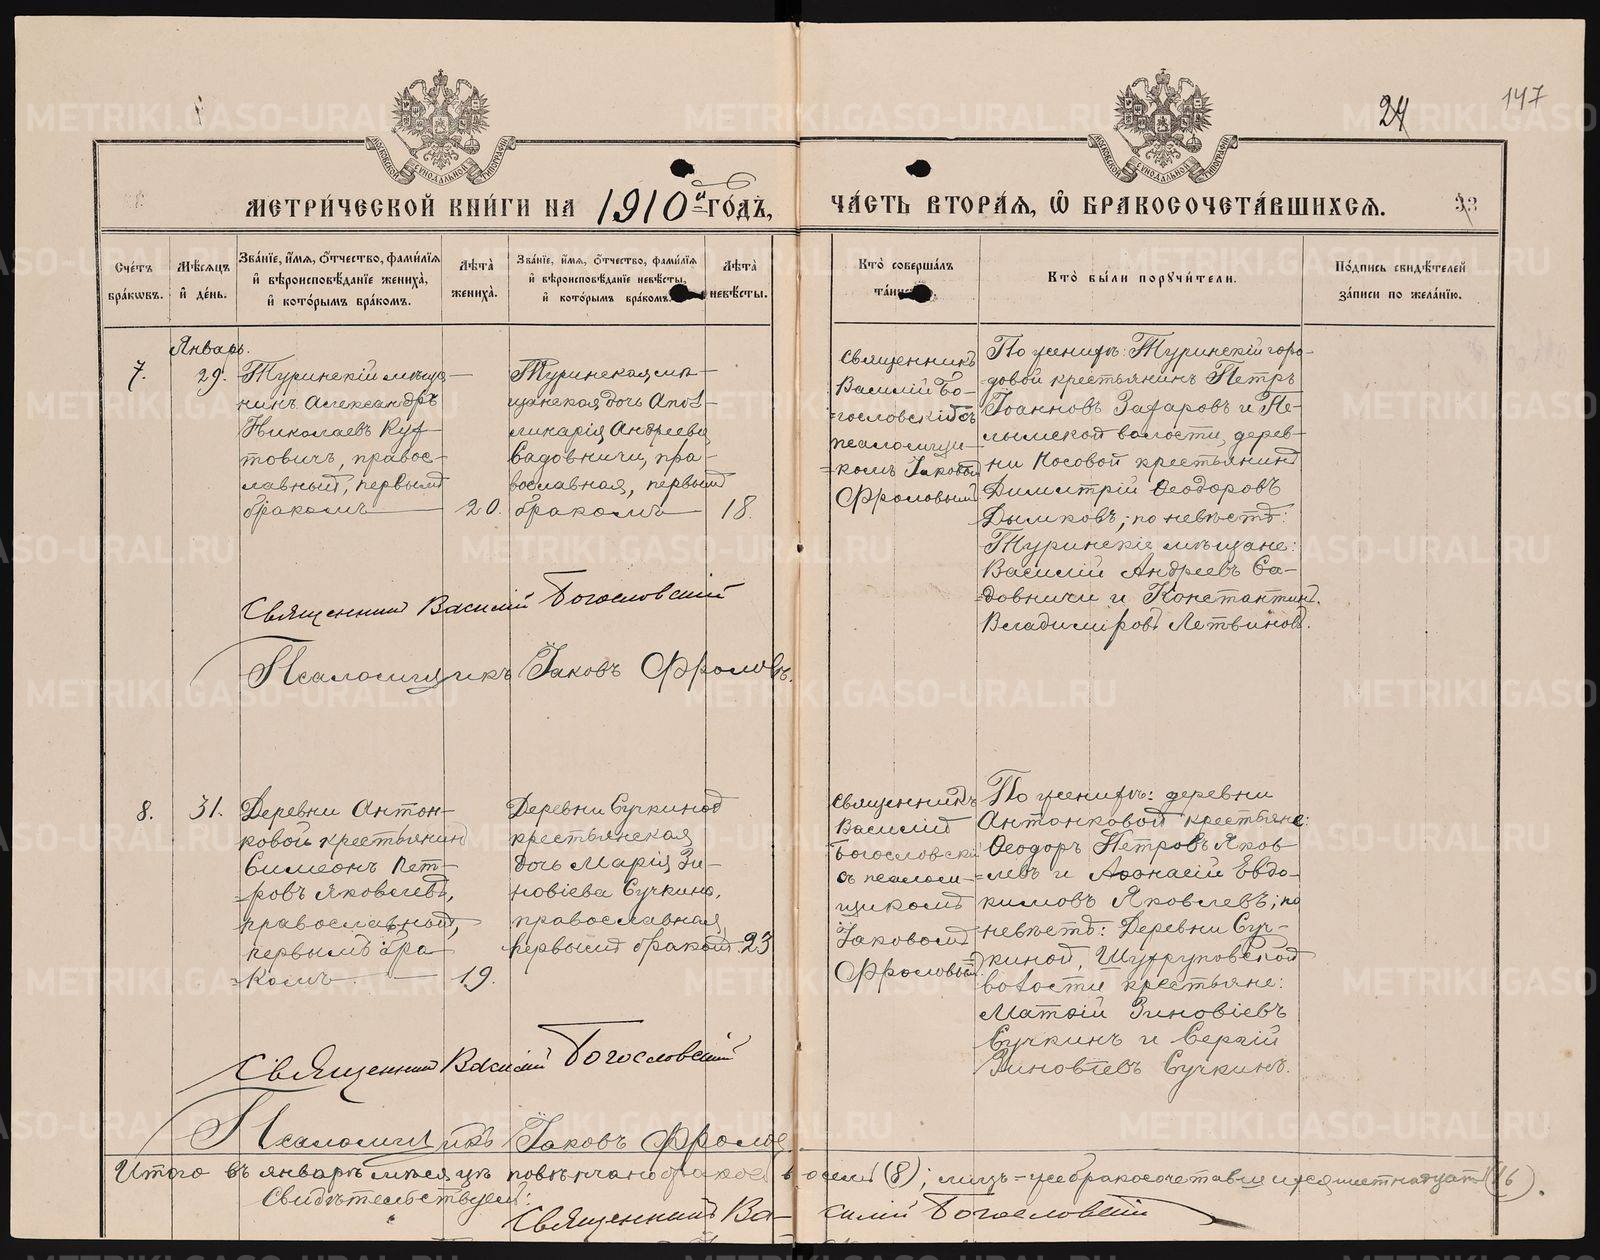 24
147
МЕТРИ́ЧЕСКОЙ КНИ́ГИ НА 1910й ГО́ДЪ,
ЧА́СТЬ ВТОРА́Я, Ѡ БРАКОСОЧЕТА́ВШИХСЯ.
33
Сче́тъ бра́кѡвъ.
Мѣ́сяцъ и де́нь.
Зва́нїе, и́мя, о́тчество, фами́лїя
и вѣроисповѣ́данїе жениха̀,
и кото́рымъ бра́комъ.
Лѣ́та жениха̀.
Зва́нїе, и́мя, о́тчество, фами́лїя
и вѣроисповѣ́данїе невѣ́сты,
и кото́рымъ бра́комъ.
Лѣ́та невѣ́сты.
Кто̀ соверша́лъ
Кто̀ бы́ли поручи́тели.
По́дпись свидѣ́телей
за́писи по жела́нїю.
Январь.
7.
29.
Туринскій мѣща-
нинъ Александръ
Николаевъ Куф-
товичъ, правос-
лавный, первымъ
бракомъ
20.
Туринская мѣ-
щанская дочь Апол-
линарія Андреева
Садовничи, пра-
вославная, первымъ
бракомъ
18.
Священникъ
Василій Бо-
гословскій съ
псаломщи-
комъ Іаковомъ
Фроловымъ
По женихѣ: Туринскій горо-
довой крестьянинъ Петръ
Іоанновъ Захаровъ и Пе-
лымской волости, дерев-
ни Носовой крестьянинъ
Димитрій Ѳеодоровъ
Дымковъ; по невѣстѣ:
Туринскіе мѣщане:
Василій Андреевъ Са-
довничи и Константинъ
Владиміровъ Летвиновъ.
Священникъ Василій Богословскій
Псаломщикъ Іаковъ Фроловъ.
8.
31.
Деревни Антон-
ковой крестьянинъ
Симеонъ Пет-
ровъ Яковлевъ,
православный,
первымъ бра-
комъ
19.
Деревни Сучкиной
крестьянская
дочь Марія Зи-
новіева Сучкина,
православная,
первымъ бракомъ
23
Священникъ
Василій
Богословскій
съ псалом-
щикомъ
Іаковомъ
Фроловымъ.
По женихѣ: деревни
Антонковой крестьяне:
Ѳеодоръ Петровъ Яков-
левъ и Аѳонасій Евдо-
кимовъ Яковлевъ; по
невѣстѣ: Деревни Суч-
киной, Шухруповской
волости крестьяне:
Матѳій Зиновіевъ
Сучкинъ и Сергій
Зиновіевъ Сучкинъ.
Священникъ Василій Богословскій
Псаломщикъ Іаковъ Фроловъ
Итого въ январѣ мѣсяцѣ повѣнчано браковъ восемь (8); лицъ-же бракосочетавшихся шестнадцать (16).
Свидѣтельствуемъ:
Священникъ Василій Богословскій
METRIKI.GASO-URAL.RU